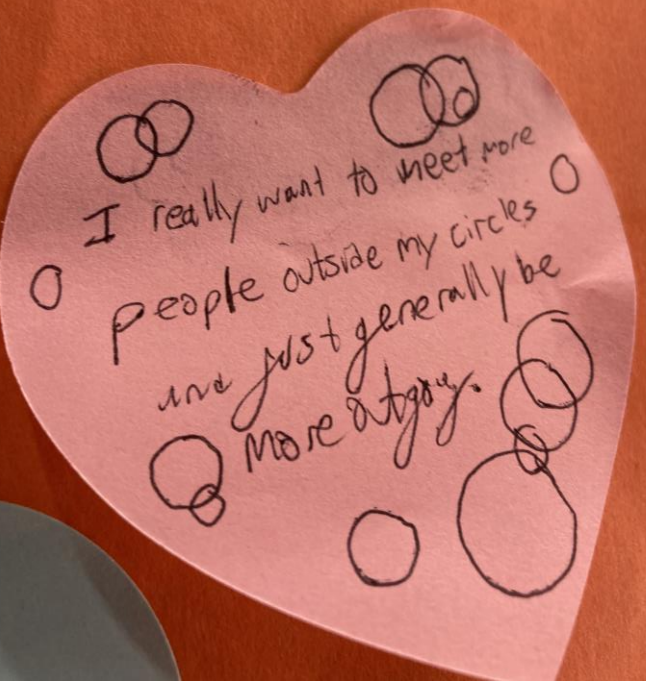 I really want to meet more
people outside my circles
and just generally be
more outgoing.